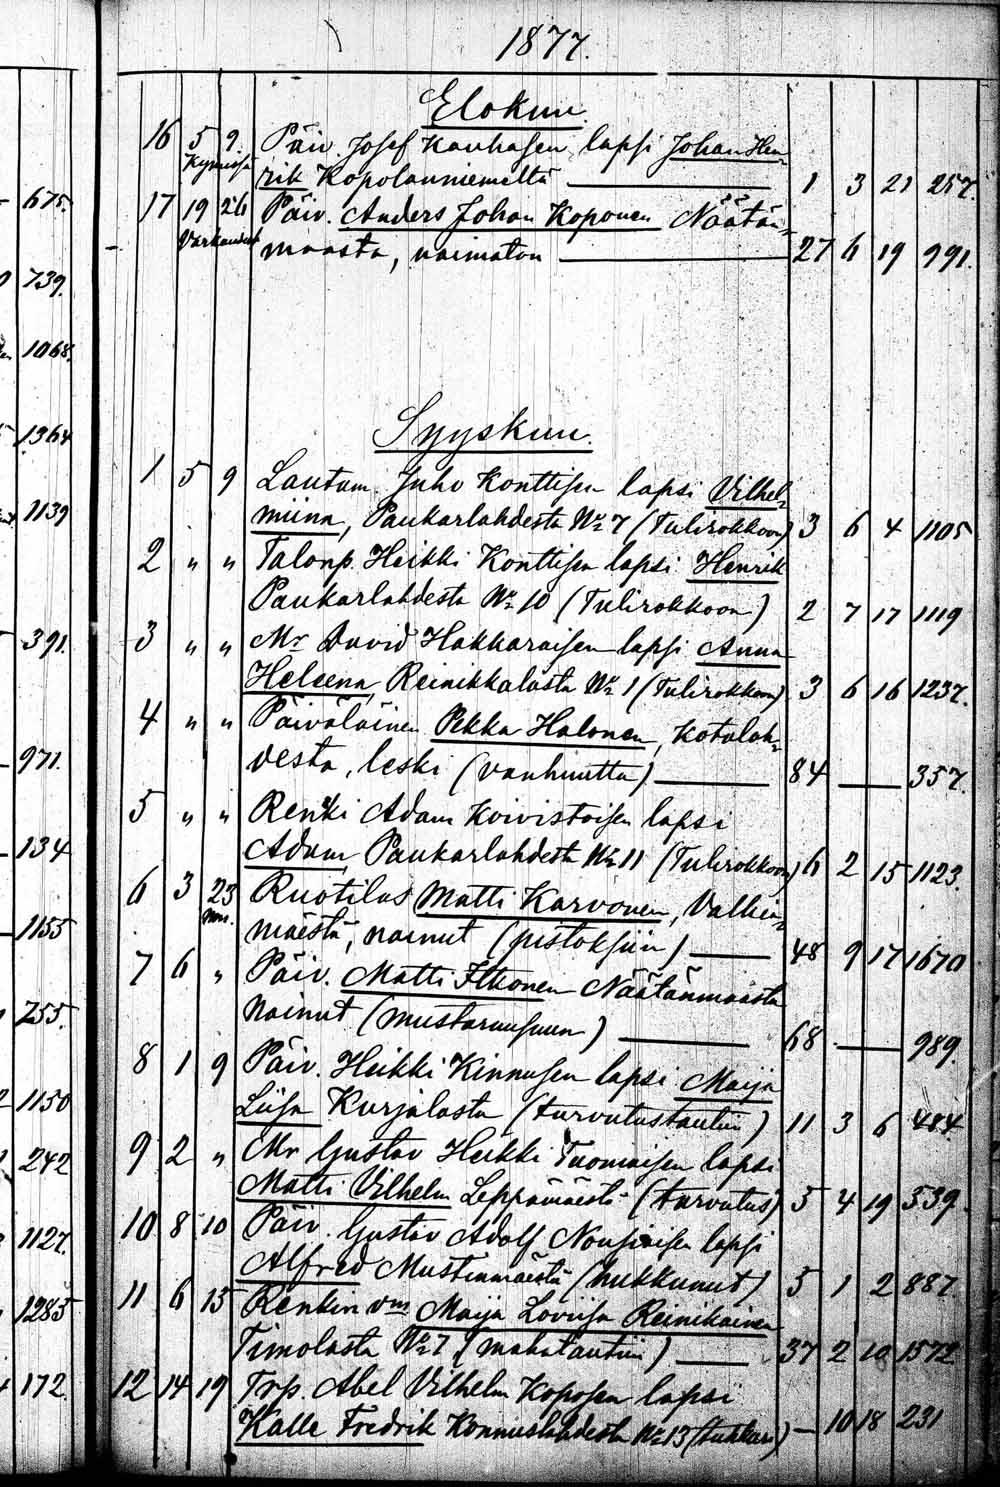 1877.
Elokuu.
16 5 9. Päiv. Josef Kauhasen lapsi Johan Hen-
Kymissä rik Kopolanniemeltä 1 3 21 257.
17 19 26 Päiv. Anders Johan Koponen Näätän-
Varkaudest maasta, naimaton 27 6 19 991.
Syyskuu.
1 5 9 Lautam. Juho Konttisen lapsi Vilhel-
miina, Paukarlahdesta No 7 (Tulirokkoon) 3 6 4 1105
2 " " Talonp. Heikki Konttisen lapsi Henrik
Paukarlahdesta No 10 (Tulirokkoon) 2 7 17 1119
3 " " Mr David Hakkaraisen lapsi Anna
Heleena, Reinikkalasta No 1 (Tulirokkoon) 3 6 16 1237.
4 " " Päiväläinen Pekka Halonen, Kotalah-
desta, leski (vanhuutta) 84 — 357.
5 " " Renki Adam Koivistoisen lapsi
Adam, Paukarlahdesta No 11 (Tulirokkoon) 6 2 15 1123.
6 3 23 Ruotilas Matti Karvonen, Vallin-
mäestä, nainut (pistoksiin) 48 9 17 1670
7 6 " Päiv. Matti Itkonen Näätänmaasta
nainut (mustaruusuun) 68 — 989.
8 1 9 Päiv. Heikki Kinnusen lapsi Maija
Liisa Kurjalasta (turvatustautiin) 11 3 6 484
9 2 " Mr Gustav Heikki Tuomaisen lapsi
Matti Vilhelm Leppämäestä (turvatus) 5 4 19 539
10 8 10 Päiv. Gustav Adolf Nousiaisen lapsi
Alfred Mustinmäestä (hukkunut) 5 1 2 887.
11 6 15 Renkin vm Maija Loviisa Reinikainen
Timolasta No 7 (mahatautiin) 37 2 10 1572
12 14 19 Trp. Abel Vilhelm Koposen lapsi
Kalle Fredrik Konnuslahdesta No 13 — 10 18 231
675.
739.
1068.
1364
1139
391.
971.
134
1155
755.
1150
242
1127.
1285
172.